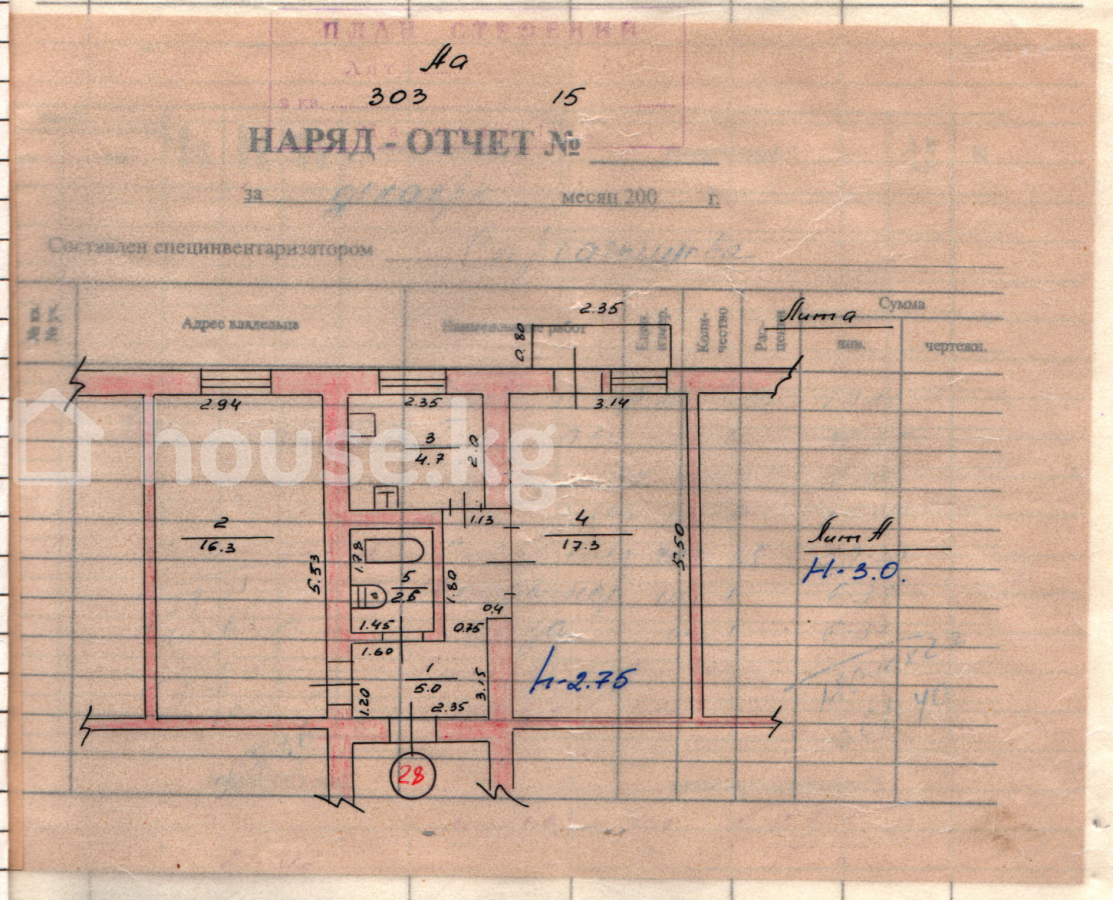 ПЛАН СТРОЕНИЙ
Аа
303 15
НАРЯД - ОТЧЕТ №
за месяц 200 г.
Составлен специнвентаризатором
№ кв. № уч. Адрес владельца Наименование работ Един. измер. Коли-чество Рас-ценки Сумма
янв. чертежи.
2.35
0.80
Лит а
2.94 2.35 3.14
house.kg
3
4.7
2.0
1.13
2
16.3
5.53
4
17.3
5.50
Лит А
H-3.0.
1.78
5
2.6
1.80
1.45
0.4
0.75
1.60
1
5.0
3.15
h-2.75
1.20
2.35
28